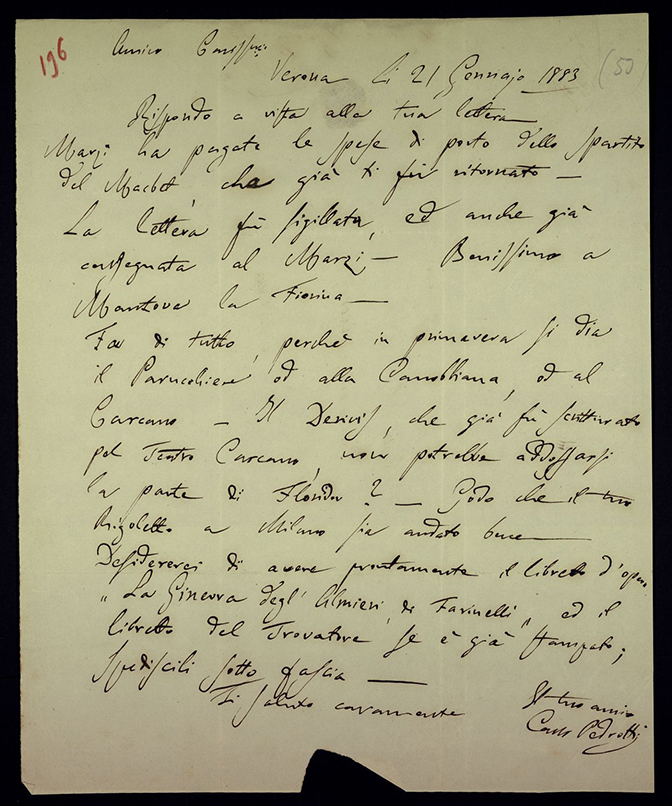 196
Amico Cariss.mo
Verona li 21 Gennajo 1883 (50)
Rispondo a vista alla tua lettera
Marzi ha pagate le spese di porto dello spartito
del Macbet, che già ti fù ritornato —
La lettera fù sigillata, ed anche già
consegnata al Marzi — Benissimo a
Mantova la Fiorina —
Fa di tutto, perchè in primavera si dia
il Parucchiere od alla Canobbiana, od al
Carcano — Il Derivis, che già fù scritturato
pel Teatro Carcano, non potrebbe addossarsi
la parte di Florindo? — Godo che il tuo
Rigoletto a Milano sia andato bene
Desidererei di avere prontamente il libretto d'opera
"La Ginevra degl'Almieri, di Farinelli", ed il
libretto del Trovatore, se è già stampato;
spediscili sotto fascia —
Ti saluto caramente
Il tuo amico
Carlo Pedrotti